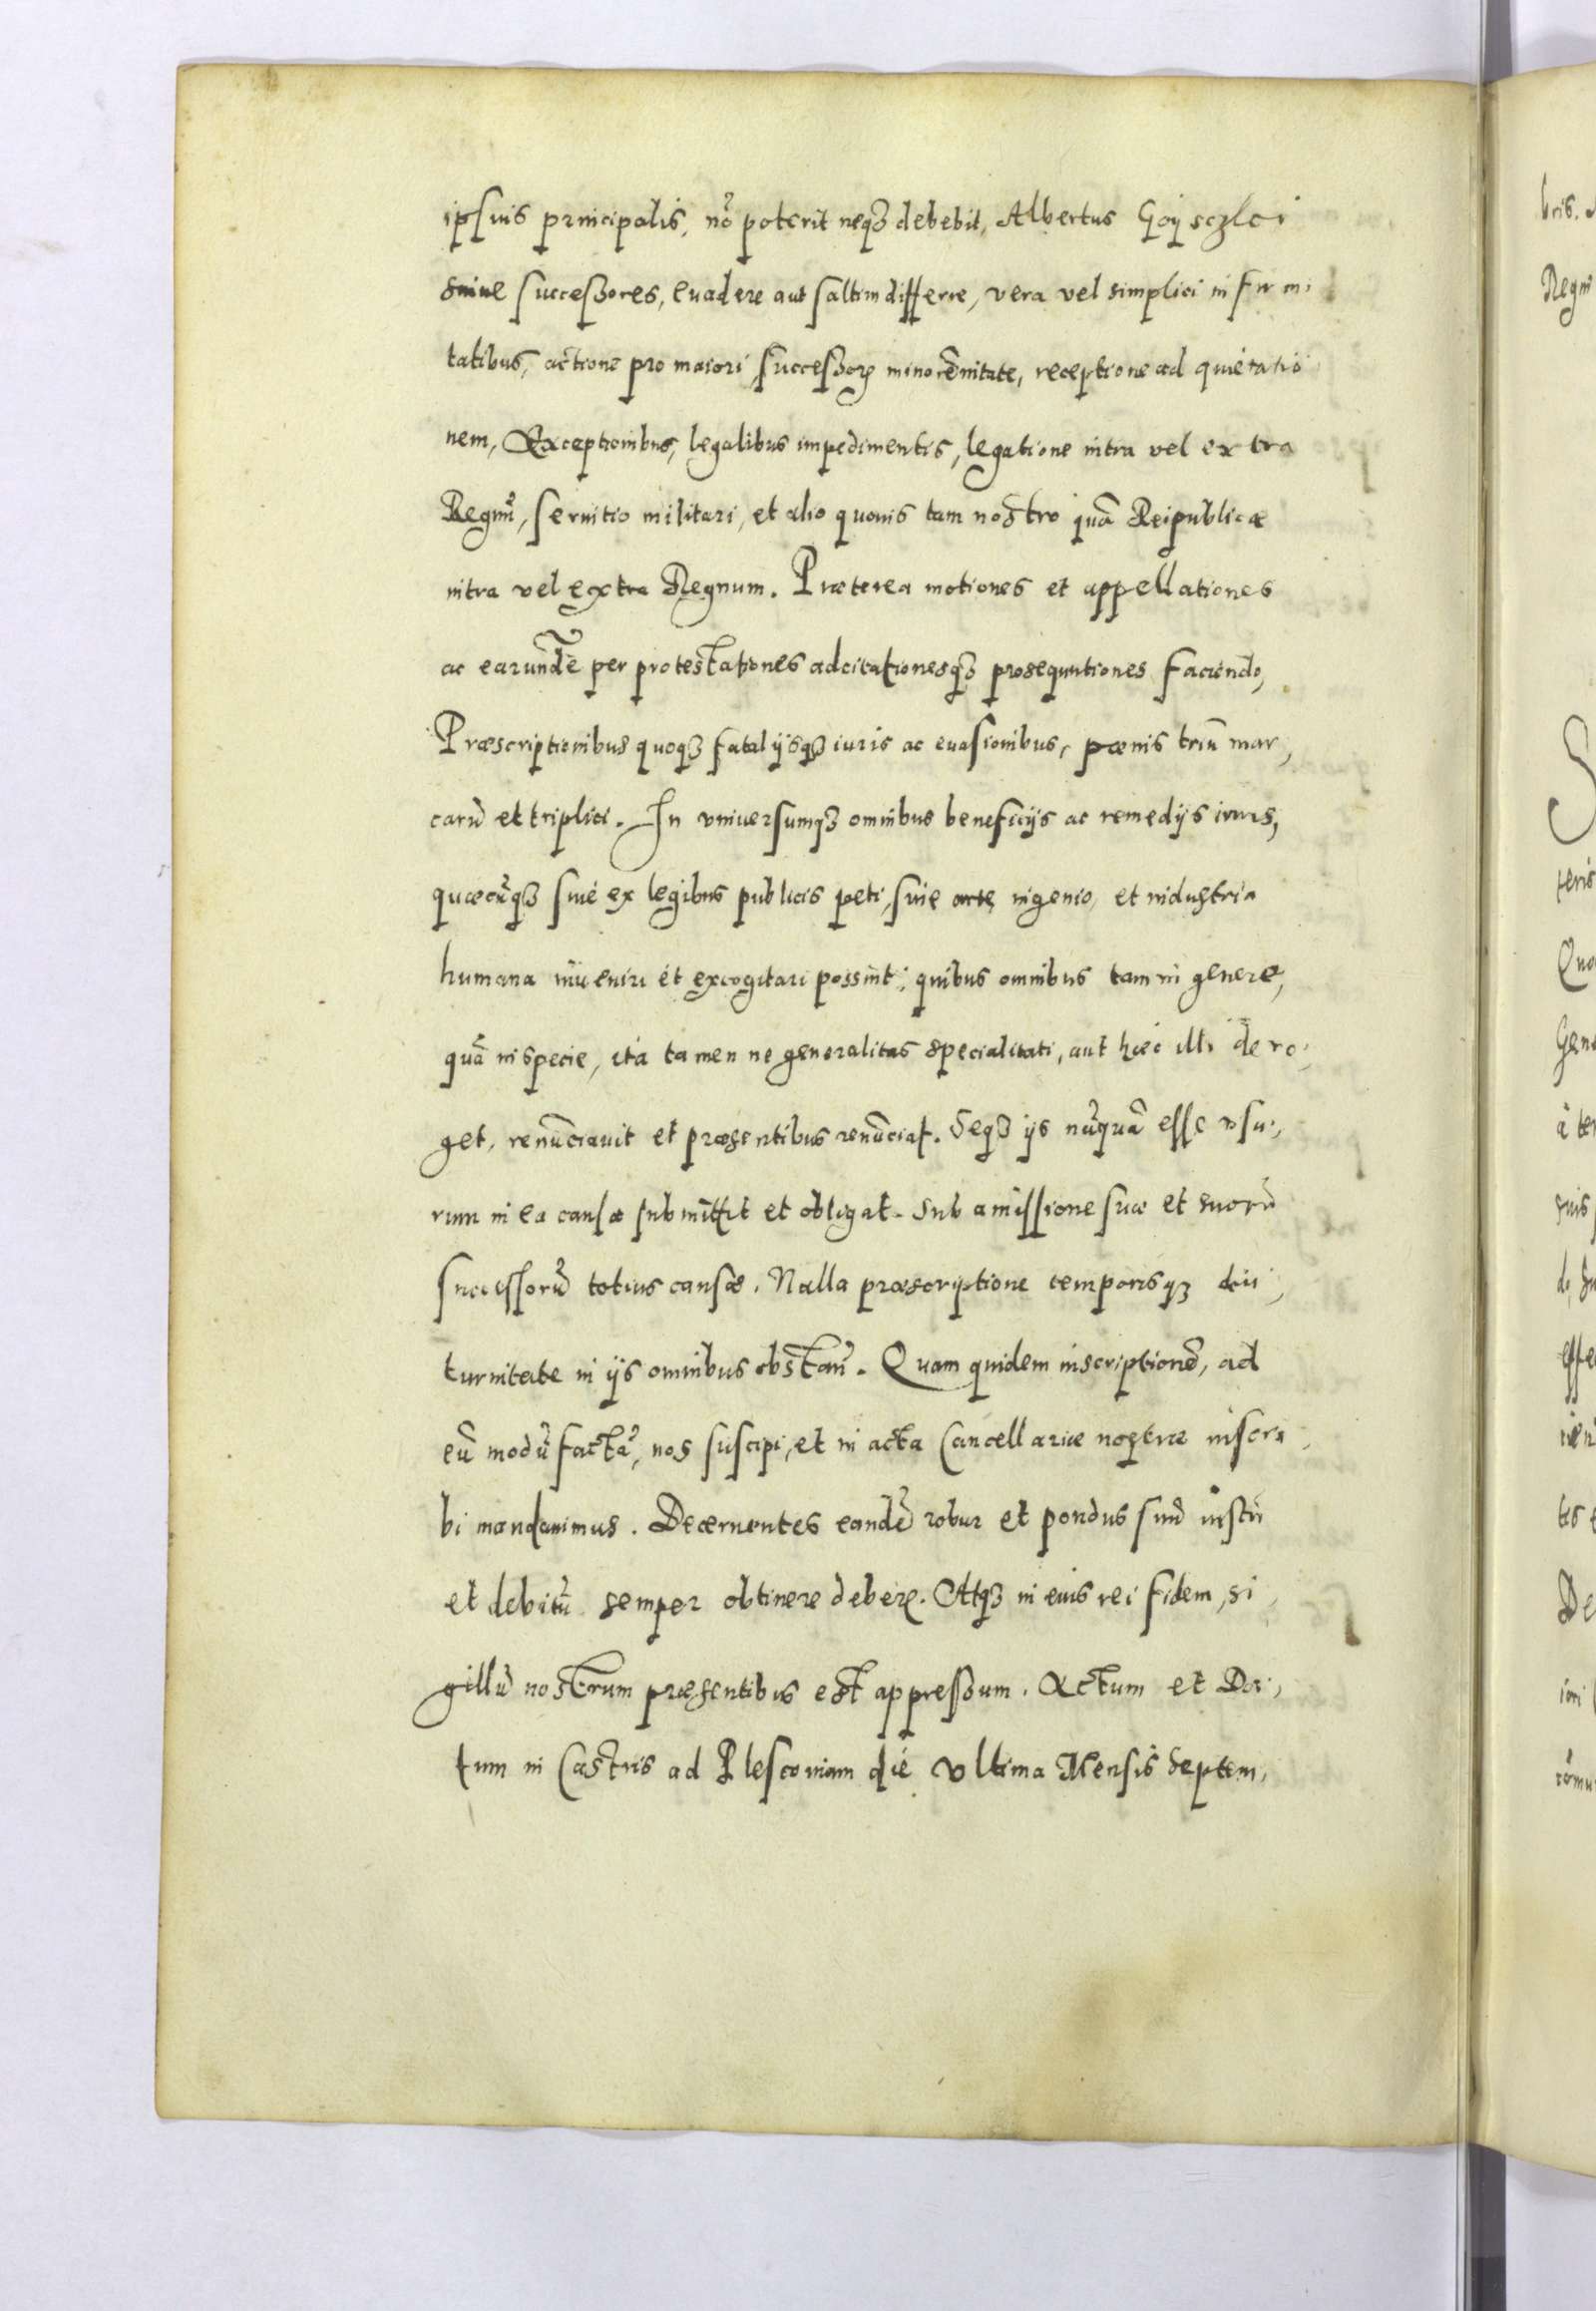 ipsius principalis, nō poterit neqꝫ debebit, Albertus Goy sczlei
siue successores, euadere aut saltim differre, vera vel simplici in fir mi
tatibus, actione pro maiori successorꝝ minorēnitate, receptione ad quietatio
nem, Exceptionibus, legalibus impedimentis, legatione intra vel extra
Regnū, seruitio militari, et alio quouis tam nostro quā Reipublicæ
intra vel extra Regnum. Præterea motiones et appellationes
ac earundē per protestationes adcitationesqꝫ prosequutiones faciendo,
Præscriptionibus quoqꝫ fatalijsqꝫ iuris ac euasionibus, pœnis triū mar,
carū et triplici. In vniuersumqꝫ omnibus beneficijs ac remedijs iuris,
quæcūqꝫ siue ex legibus publicis peti, siue arte, ingenio, et industria
humana inueniri et excogitari possint; quibus omnibus tam in genere,
quā in specie, ita tamen ne generalitas specialitati, aut hæc illi dero,
get, renūciauit et præsentibus renūciat. Seqꝫ ijs nūquā esse vsu,
rum in ea causa submittit et obligat. Sub amissione suæ et suorū
successorū totius causæ. Nulla præscriptione temporisqꝫ diu,
turnitate in ijs omnibus obstan̄. Quam quidem inscriptionē, ad
eū modū factā, nos suscipi, et in acta Cancellariæ nostræ inscri,
bi mandauimus. Decernentes eandē robur et pondus suū iustū
et debitū semper obtinere deberꝫ. Atqꝫ in eius rei fidem, si,
gillū nostrum præsentibus est appressum. Actum et Da,
tum in Castris ad Plescouiam die vltima Mensis Septem,